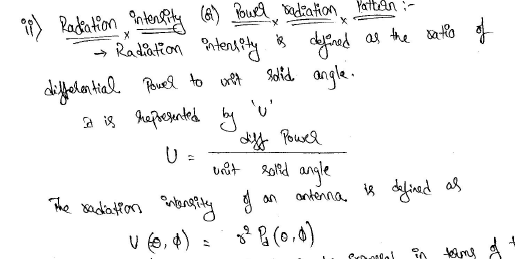 ii) Radiation intensity (or) Power radiation Pattern :-
→ Radiation intensity is defined as the ratio of
differential Power to unit solid angle.
It is represented by 'U'
U = diff Power
unit solid angle
The radiation intensity of an antenna is defined as
U (θ, ϕ) = r² Pd (θ, ϕ)
in terms of